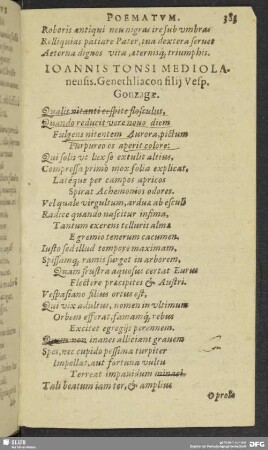 POEMATVM. 383
Roboris antiqui neu nigras ire sub vmbras
Relliquias patiare Pater, tua dextera seruet
Aeterna dignos vita, æternisq; triumphis.
IOANNIS TONSI MEDIOLA-
nensis. Genethliacon filij Vesp.
Gonzagæ.
Qualis nitanti cespite flosculus,
Quando reducit vere nouo diem
Fulgens nitentem Aurora, pictum
Purpureo os aperit colore:
Qui solis vt luxso extulit altius,
Compressa primò mox folia explicat,
Latéque per campos apricos
Spirat Achemonios odores.
Vel quale virgultum, ardua ab esculi
Radice quando nascitur infima,
Tantum exerens telluris alma
E gremio tenerum cacumen.
Iusto sed illud tempore maximam,
Spissamq; ramis surget in arborem,
Quam frustra aquosus certat Eurus
Flectere præcipites & Austri.
Vespasiano filius ortus est,
Qui vix adultus, nomen in vltimum
Orbem efferat, famamq; rebus
Excitet egregijs perennem.
Quem non inanes alliciant grauem
Spes, nec cupido pessima turpiter
Impellat, aut fortuna vultu
Terreat impauidum minaci.
Tali beatum iam ter, & amplius
O prole
SLUB
DFG